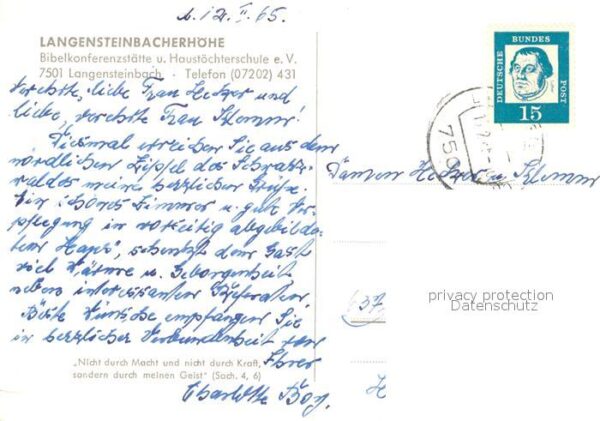 d. 12. II. 65.
LANGENSTEINBACHERHÖHE
Bibelkonferenzstätte u. Haustöchterschule e. V.
7501 Langensteinbach · Telefon (07202) 431
verehrte, liebe Frau Hecker und
liebe, verehrte Frau Klemm!
Diesmal erreichen Sie aus dem
nördlichen Zipfel des Schwarz-
waldes meine herzlichen Grüße.
Ein schönes Zimmer u. gute Ver-
pflegung in umseitig abgebilde-
tem Haus, schenkt dem Gast
viel Wärme u. Geborgenheit
neben interessanten Referaten.
Beste Wünsche empfangen Sie
in herzlicher Verbundenheit von
Ihrer
Charlotte
„Nicht durch Macht und nicht durch Kraft,
sondern durch meinen Geist" (Sach. 4, 6)
DEUTSCHE BUNDES POST
15
750
Damen Hecker u. Klemm
637
privacy protection
Datenschutz
H